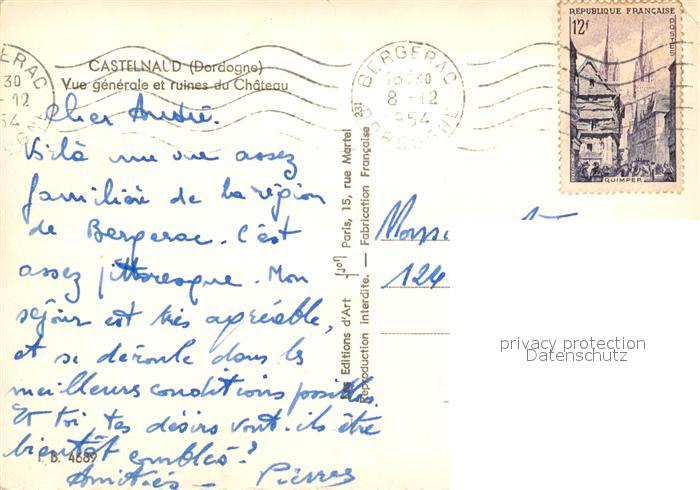 CASTELNAUD (Dordogne)
Vue générale et ruines du Château
Cher André.
Voilà une vue assez
familière de la région
de Bergerac. C'est
assez pittoresque. Mon
séjour est très agréable,
et se déroule dans les
meilleurs conditions possibles.
Et toi, tes désirs vont-ils être
bientôt comblés?
Amitiés - Pierre
B. 4689
Editions d'Art Yvon Paris, 15, rue Martel
Reproduction interdite. — Fabrication Française 237
BERGERAC
16 30
8 - 12
1954
DORDOGNE
RÉPUBLIQUE FRANÇAISE
12f
POSTES
QUIMPER
124
privacy protection
Datenschutz